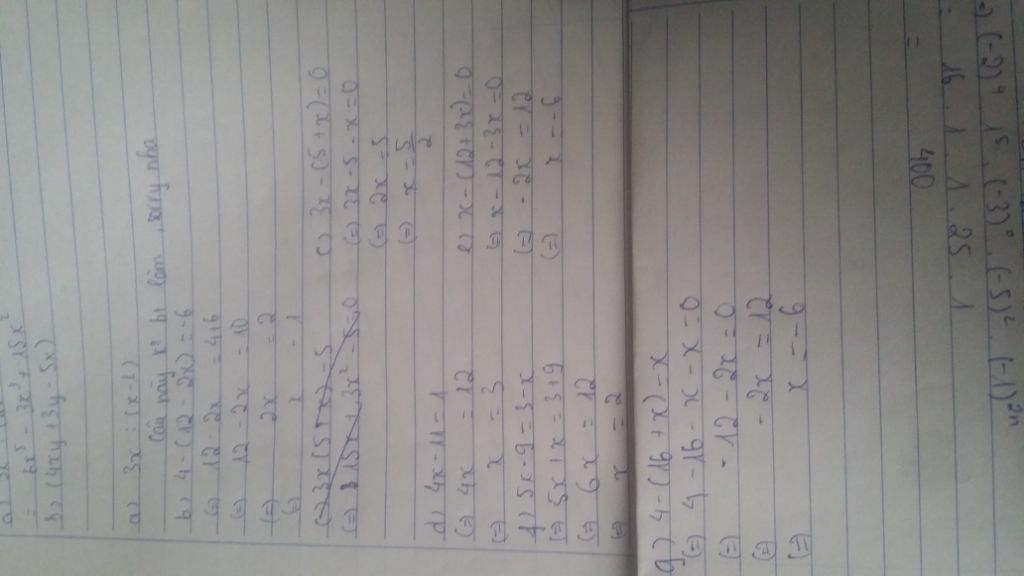 = 6x⁵ - 3x³ + 15x²
b) (4xy + 3y - 5x)
a) 3x : (x - 2)
Câu này x² bị lầm, sorry nha
b) 4 - (12 - 2x) = -6
(=) 12 - 2x = 4+6
(=) 12 - 2x = 10
(=) 2x = 2
(=) x = 1
c) 3x - (5 + x) = 0
(=) 3x - 5 - x = 0
(=) 2x = 5
(=) x = 5/2
d) 4x - 11 = 1
(=) 4x = 12
(=) x = 3
e) x - (12 + 3x) = 0
(=) x - 12 - 3x = 0
(=) - 2x = 12
(=) x = - 6
f) 5x - 9 = 3 - x
(=) 5x + x = 3 + 9
(=) 6x = 12
(=) x = 2
g) 4 - (16 + x) = x
(=) 4 - 16 - x - x = 0
(=) - 12 - 2x = 0
(=) - 2x = 12
(=) x = - 6
(-2)⁴ . 1⁵ . (-3)⁰ . (-5)² . (-1)²ⁿ
= 16 . 1 . 1 . 25 . 1
= 400